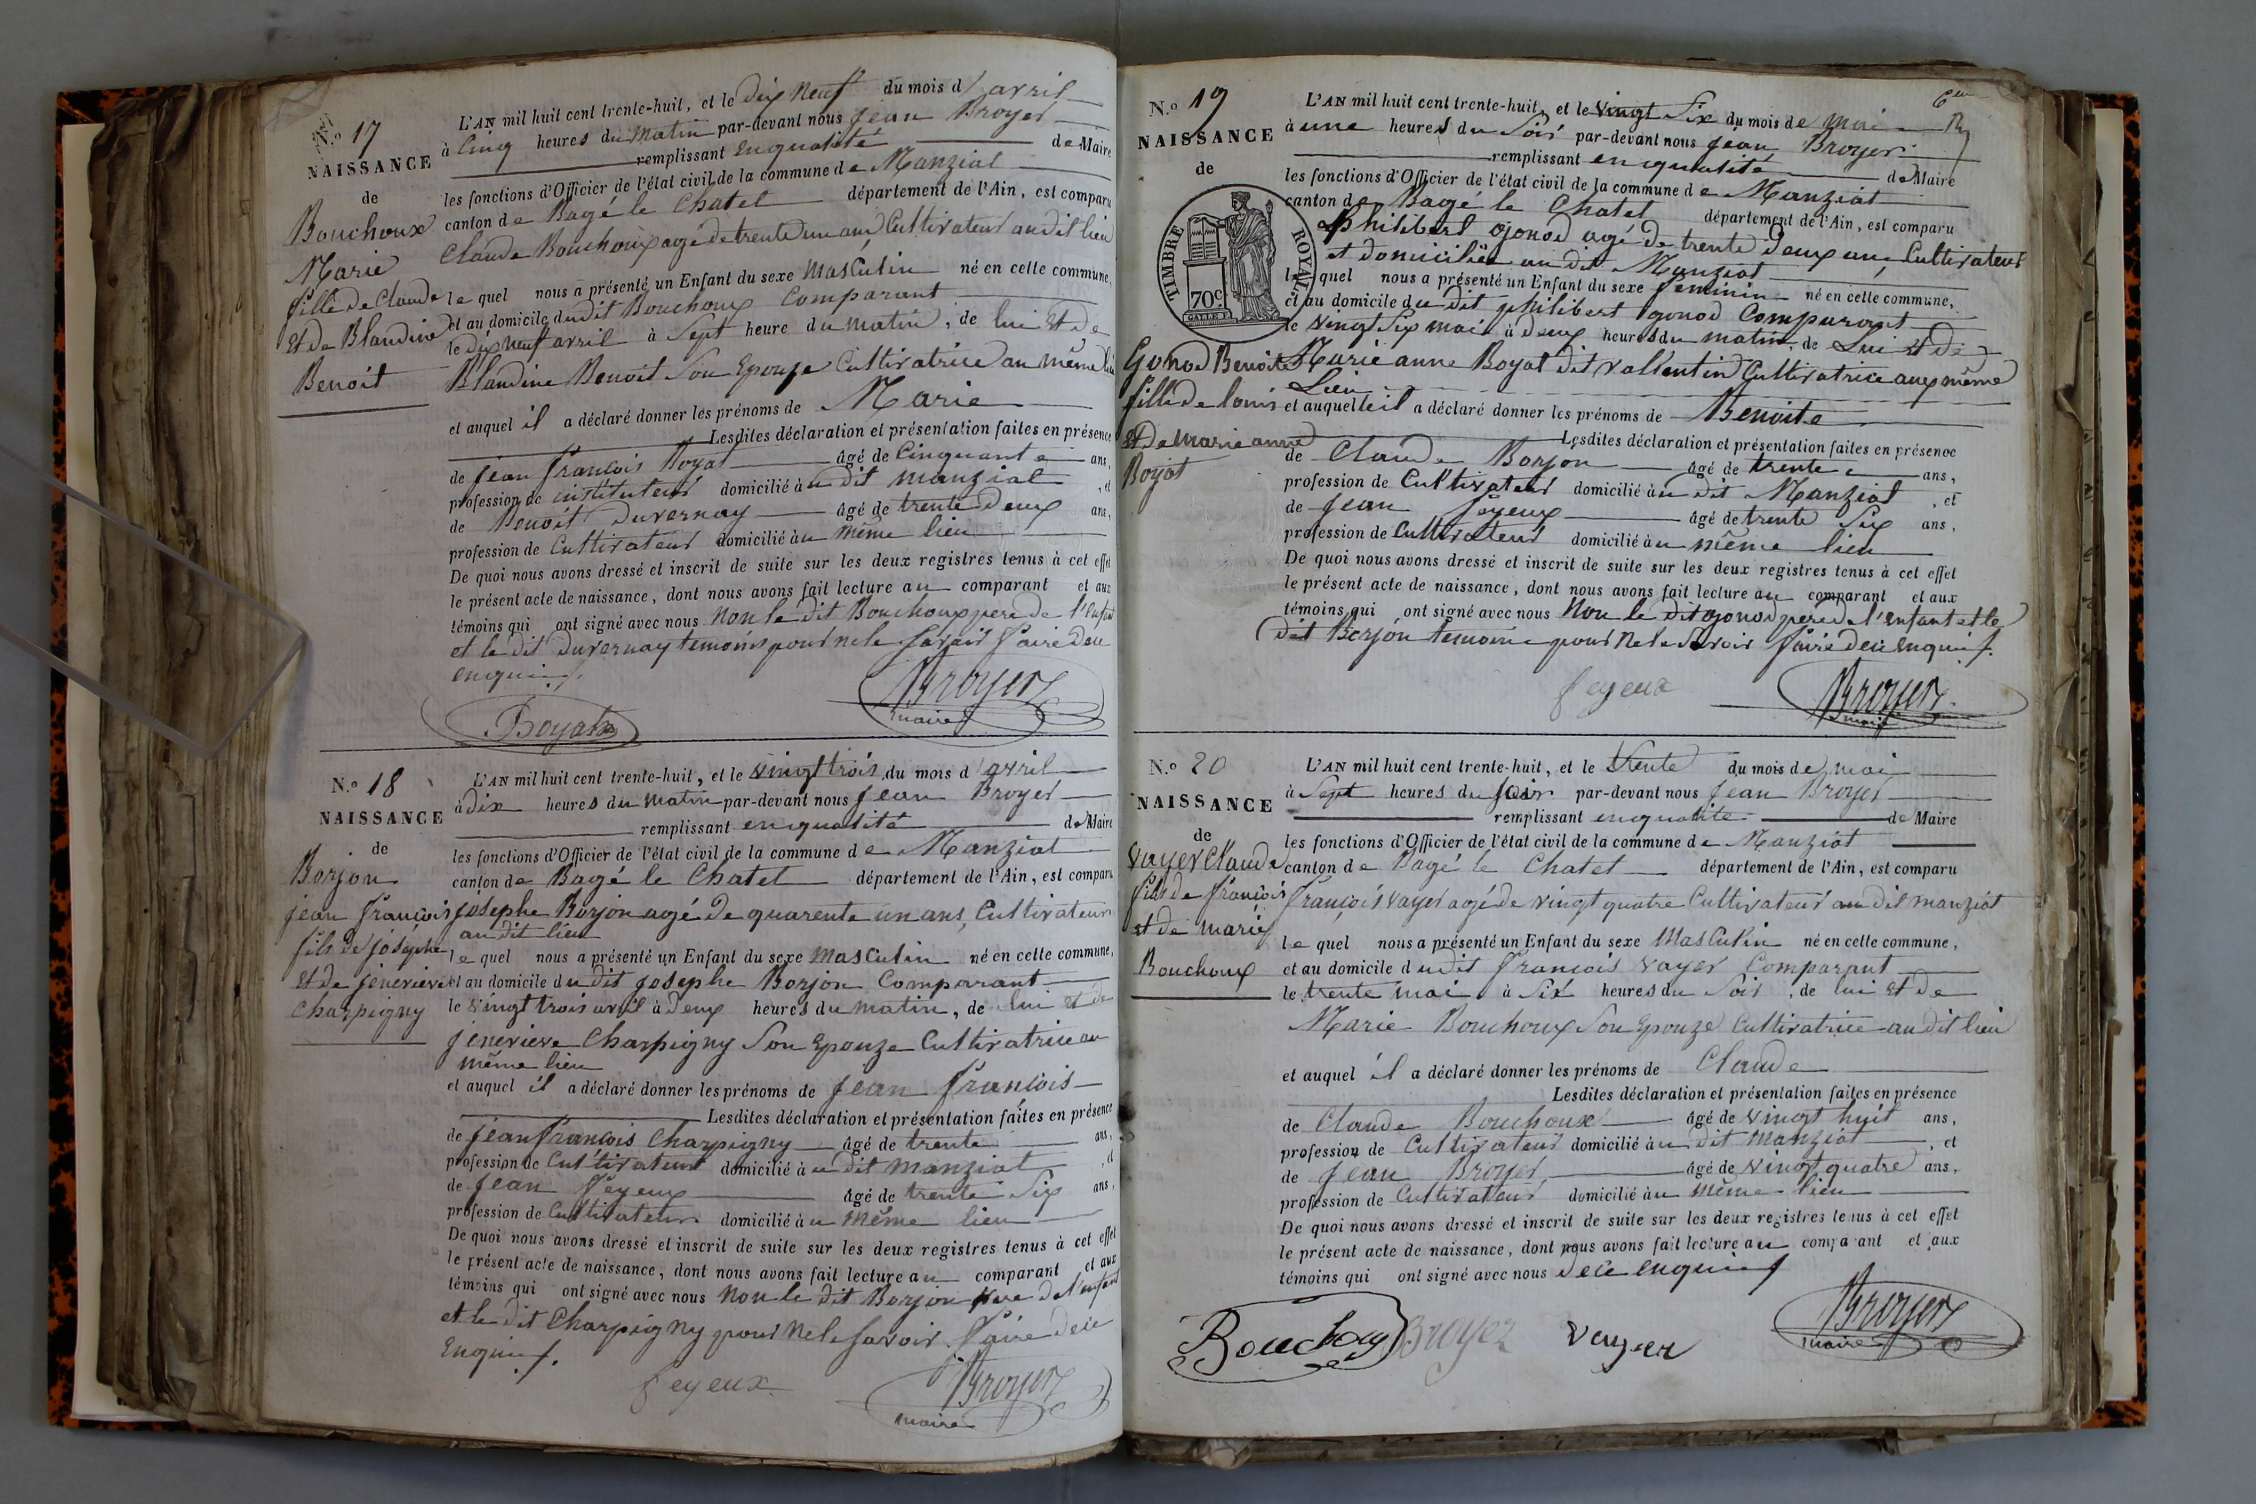 N.º 17
NAISSANCE
de
Bouchoux
Marie
fille de Claude
et de Blandine
Benoit
L'AN mil huit cent trente-huit, et le dix neuf du mois d'avril
à cinq heures du matin par-devant nous jean Broyer
remplissant en qualité de Maire
les fonctions d'Officier de l'état civil de la commune de Manziat
canton de Bagé le Chatel département de l'Ain, est comparu
Claude Bouchoux agé de trente un ans Cultivateur au dit lieu
le quel nous a présenté un Enfant du sexe masculin né en cette commune,
et au domicile du dit Bouchoux Comparant
le dix neuf avril à sept heure du matin, de lui et de
Blandine Benoit Son Epouze Cultivatrice au même lieu
et auquel il a déclaré donner les prénoms de Marie
Lesdites déclaration et présentation faites en présence
de jean françois Boyat âgé de Cinquante ans,
profession de instituteur domicilié au dit manziat, et
de Benoit Duvernay âgé de trente deux ans,
profession de Cultivateur domicilié au même lieu
De quoi nous avons dressé et inscrit de suite sur les deux registres tenus à cet effet
le présent acte de naissance, dont nous avons fait lecture au comparant et aux
témoins qui ont signé avec nous Non le dit Bouchoux pere de l'enfant
et le dit Duvernay temoins pour ne le savoir faire de ce
enquis
Boyat
Broyer
maire
N.º 18
NAISSANCE
de
Borjon
jean françois
fils de joséphe
et de jenevieve
Charpigny
L'AN mil huit cent trente-huit, et le vingt trois du mois d'avril
à dix heures du matin par-devant nous jean Broyer
remplissant en qualité de Maire
les fonctions d'Officier de l'état civil de la commune de Manziat
canton de Bagé le Chatel département de l'Ain, est comparu
josephe Borjon agé de quarente un ans, Cultivateur
au dit lieu
le quel nous a présenté un Enfant du sexe masculin né en cette commune,
et au domicile du dit josephe Borjon Comparant
le vingt trois avril à deux heures du matin, de lui et de
jenevieve Charpigny Son Epouze Cultivatrice au
même lieu
et auquel il a déclaré donner les prénoms de jean françois
Lesdites déclaration et présentation faites en présence
de jean françois Charpigny âgé de trente ans,
profession de Cultivateur domicilié au dit manziat, et
de jean feyeux âgé de trente six ans,
profession de Cultivateur domicilié au même lieu
De quoi nous avons dressé et inscrit de suite sur les deux registres tenus à cet effet
le présent acte de naissance, dont nous avons fait lecture au comparant et aux
témoins qui ont signé avec nous Non le dit Borjon pere de l'enfant
et le dit Charpigny pour ne le savoir faire de ce
Enquis
feyeux
Broyer
maire
N.º 19
NAISSANCE
de
TIMBRE ROYAL
70c
Gonod Benoite
fille de louis
et De marie anne
Boyat
L'AN mil huit cent trente-huit, et le vingt Six du mois de mai
à une heures du Soir par-devant nous jean Broyer
remplissant en qualité de Maire
les fonctions d'Officier de l'état civil de la commune de Manziat
canton de Bagé le Chatel département de l'Ain, est comparu
Philibert gonod agé de trente deux ans, Cultivateur
et domicilié au dit Manziat
le quel nous a présenté un Enfant du sexe feminin né en cette commune,
et au domicile du dit philibert gonod Comparant
le vingt six mai à deux heures du matin, de Lui et de
Marie anne Boyat dit vallentin Cultivatrice aux même
Lieu
et auquel il a déclaré donner les prénoms de Benoite
Lesdites déclaration et présentation faites en présence
de Claude Borjon âgé de trente ans,
profession de Cultivateur domicilié au dit Manziat, et
de jean feyeux âgé de trente Six ans,
profession de Cultivateur domicilié au même lieu
De quoi nous avons dressé et inscrit de suite sur les deux registres tenus à cet effet
le présent acte de naissance, dont nous avons fait lecture au comparant et aux
témoins qui ont signé avec nous Non le dit gonod pere de l'enfant et le
dit Borjon temoins pour ne le savoir faire de ce enquis
feyeux
Broyer
maire
N.º 20
NAISSANCE
de
Vayer Claude
fils de françois
et de marie
Bouchoux
L'AN mil huit cent trente-huit, et le trente du mois de mai
à Sept heures du soir par-devant nous jean Broyer
remplissant en qualité de Maire
les fonctions d'Officier de l'état civil de la commune de Manziat
canton de Bagé le Chatel département de l'Ain, est comparu
françois vayer agé de vingt quatre Cultivateur au dit manziat
le quel nous a présenté un Enfant du sexe Masculin né en cette commune,
et au domicile du dit françois vayer Comparant
le trente mai à Six heures du Soir, de lui et de
Marie Bouchoux Son Epouze Cultivatrice au dit lieu
et auquel il a déclaré donner les prénoms de Claude
Lesdites déclaration et présentation faites en présence
de Claude Bouchoux âgé de vingt huit ans,
profession de Cultivateur domicilié au dit manziat, et
de jean Broyer âgé de vingt quatre ans,
profession de Cultivateur domicilié au même lieu
De quoi nous avons dressé et inscrit de suite sur les deux registres tenus à cet effet
le présent acte de naissance, dont nous avons fait lecture au comparant et aux
témoins qui ont signé avec nous de ce enquis
Bouchoux Broyer vayer
Broyer
maire